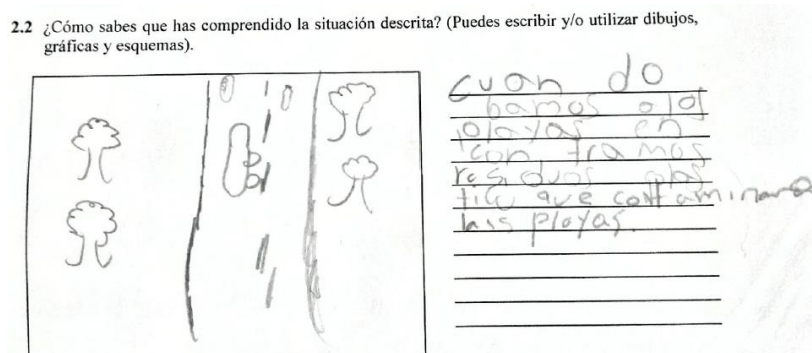 2.2 ¿Cómo sabes que has comprendido la situación descrita? (Puedes escribir y/o utilizar dibujos,
gráficas y esquemas).
cuan do
bamos a las
playas en
con tramos
residuos plas
ticu que contaminan
las playas.